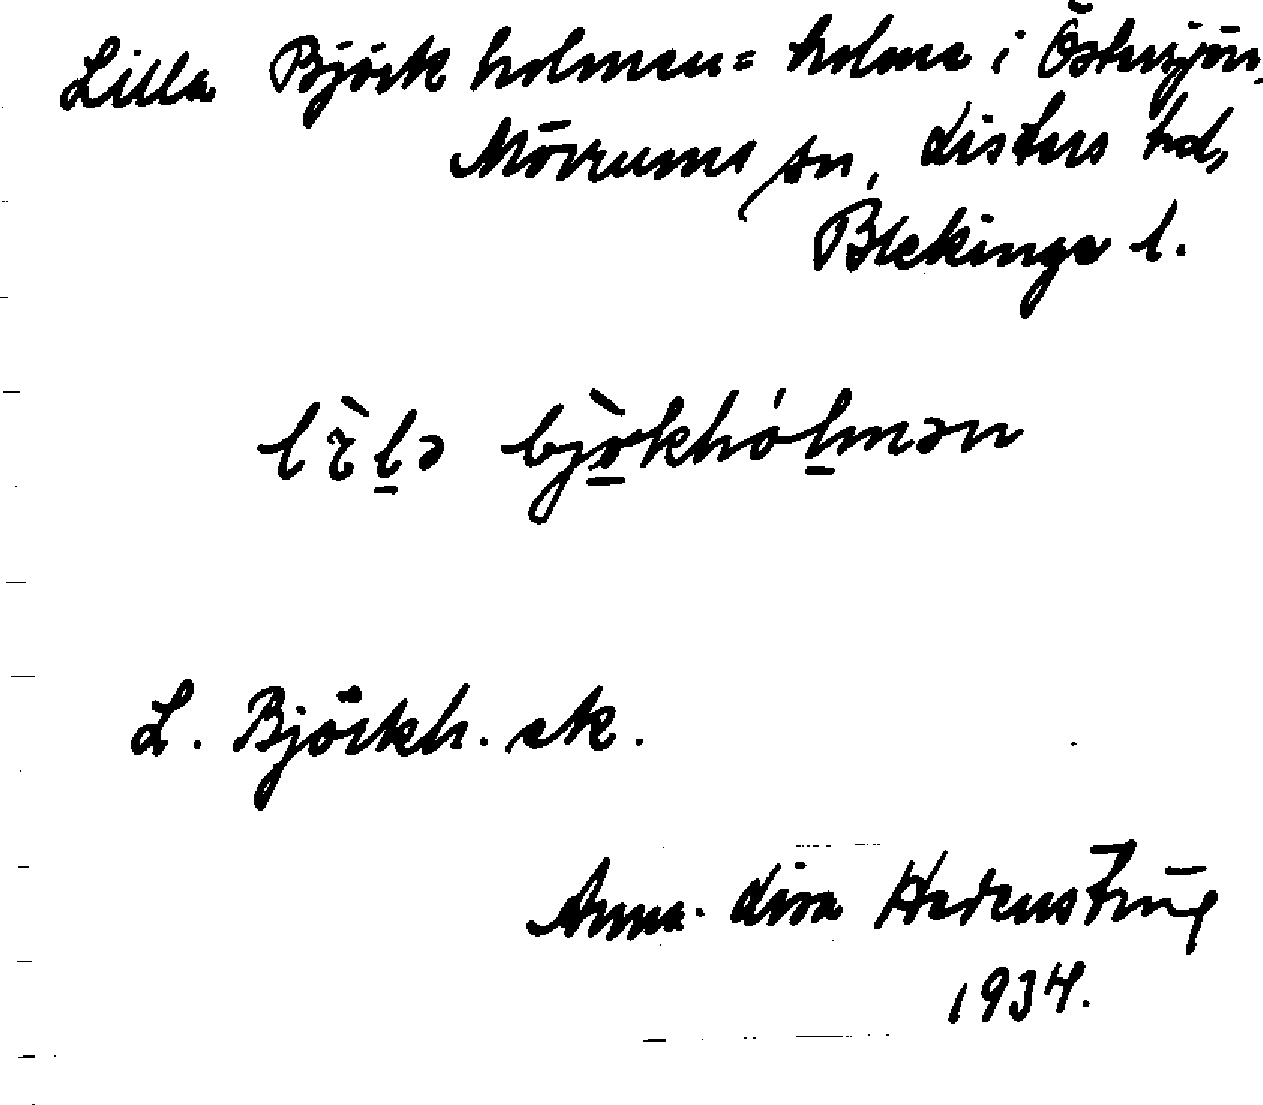 Lilla Björkholmen = holme i Östersjön,
Mörrums sn, Listers hd,
Blekinge l.
lìla bjö̀rkhólmən
L. Björkh. ek.
Anna-Lisa
1934.